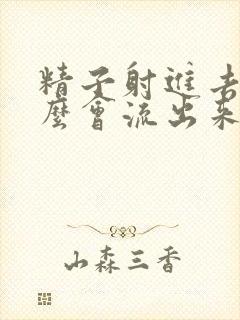 精子射进去
么会流出来
山森三香